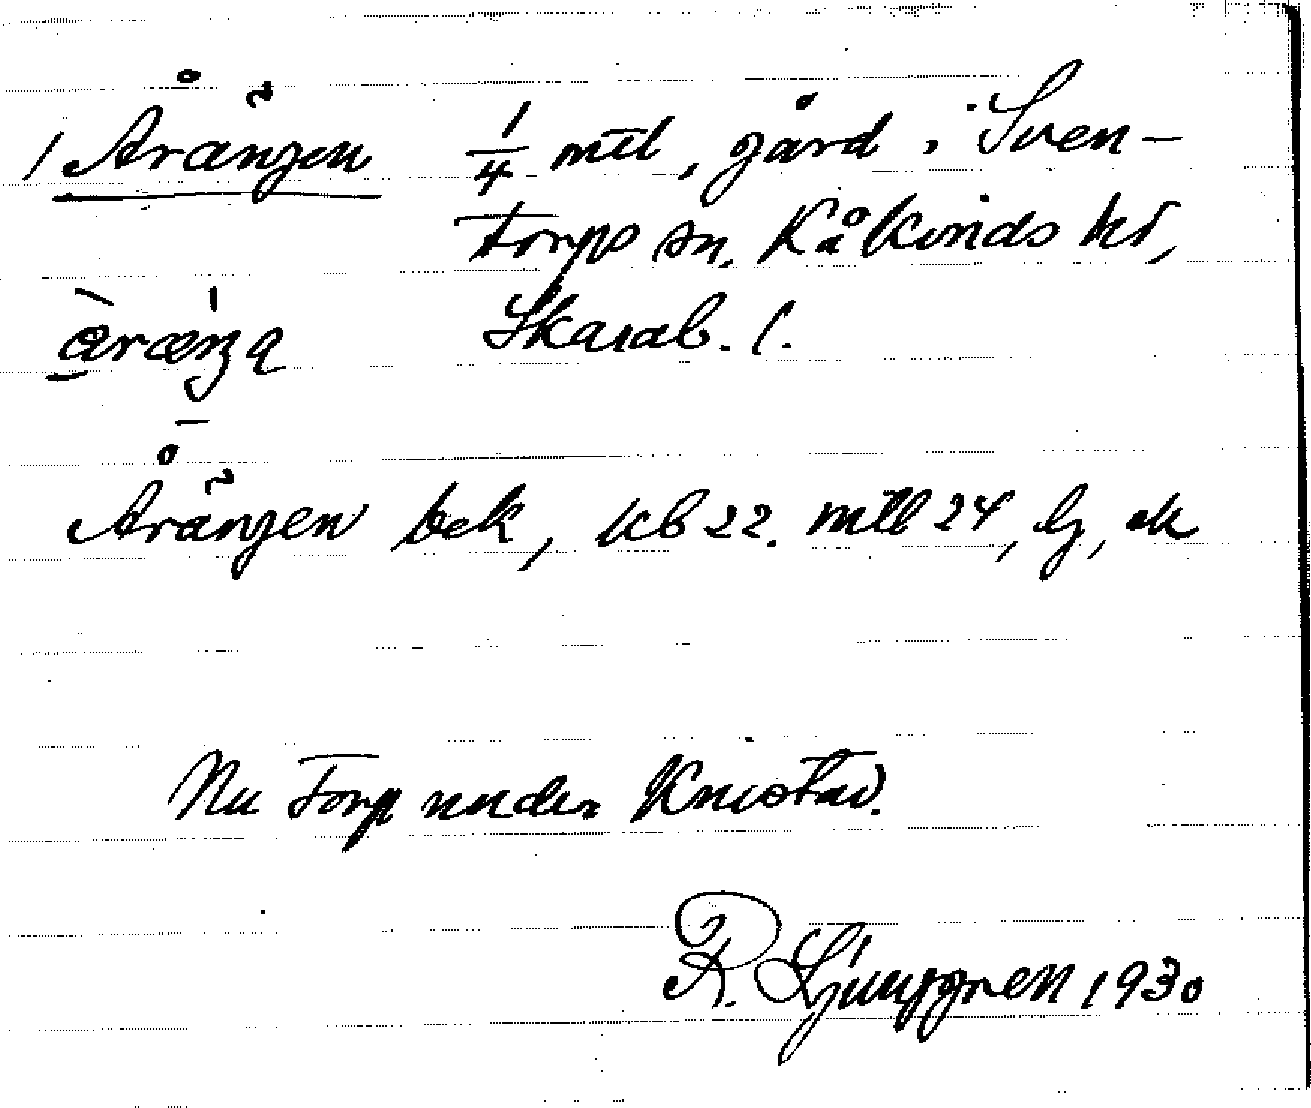 1 Årängen 1/4 mtl, gård i Sven-
torps sn, Kåkinds hd,
Skarab. l.
Årängen bek, kb 22. mtl 24, lj, ek
Nu torp under Knistad.
R. Ljunggren 1930